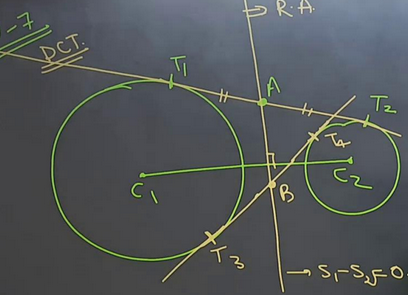 -7
R.A.
DCT.
T1
A
T2
T4
C1
C2
B
T3
S1-S2=0.